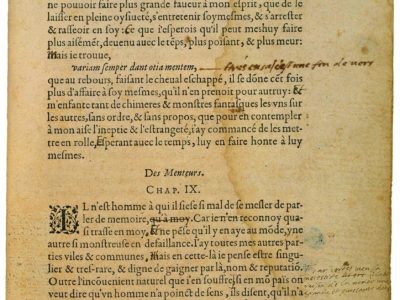 ne pouuoir faire plus grande faueur à mon esprit, que de le
laisser en pleine oysiueté, s'entretenir soy mesmes, & s'arrester
& rasseoir en soy: ce que i'esperois qu'il peut meshuy faire
plus aisémēt, deuenu auec le tēps, plus poisant, & plus meur:
Mais ie trouue,
variam semper dant otia mentem,
que au rebours, faisant le cheual eschappé, il se dōne cēt fois
plus d'affaire à soy mesmes, qu'il n'en prenoit pour autruy: &
m'enfante tant de chimeres & monstres fantasques les vns sur
les autres, sans ordre, & sans propos, que pour en contempler
à mon aise l'ineptie & l'estrangeté, i'ay commancé de les met-
tre en rolle, Esperant auec le temps, luy en faire honte à luy
mesmes.
Des Menteurs.
CHAP. IX.
IL n'est homme à qui il siese si mal de se mesler de par-
ler de memoire, qu'à moy. Car ie n'en reconnoy qua-
si trasse en moy, & ne pēse qu'il y en aye au mōde, vne
autre si monstrueuse en defaillance. I'ay toutes mes autres
parties viles & communes, mais en cette-là ie pense estre singu-
lier & tres-rare, & digne de gaigner par là, nom & reputatiō.
Outre l'inconueniant naturel que i'en souffre, si en mō païs on
veut dire qu'vn homme n'a poinct de sens, ils disent, qu'il n'a